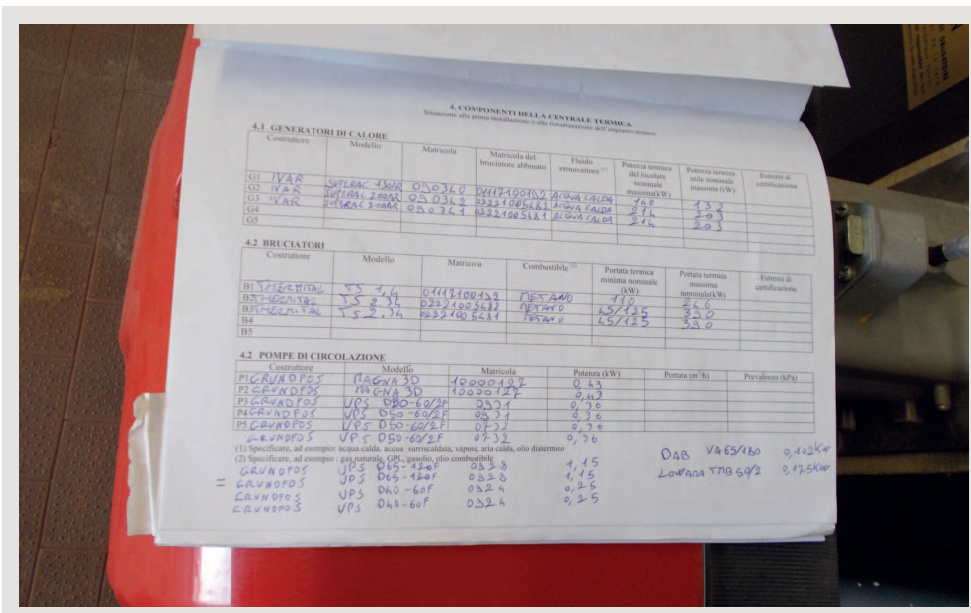 4. COMPONENTI DELLA CENTRALE TERMICA
Situazione alla prima installazione o alla ristrutturazione dell'impianto termico
4.1 GENERATORI DI CALORE
Costruttore Modello Matricola Matricola del bruciatore abbinato Fluido termovettore (1) Potenza termica del focolare nominale massima(kW) Potenza termica utile nominale massima (kW) Estremi di certificazione
G1 IVAR SUPERAC 130AR 090340 01117100192 ACQUA CALDA 140 132
G2 IVAR SUPERAC 200AR 090342 02221005482 ACQUA CALDA 214 203
G3 IVAR SUPERAC 200AR 090341 02221005481 ACQUA CALDA 214 203
G4
G5
4.2 BRUCIATORI
Costruttore Modello Matricola Combustibile (2) Portata termica minima nominale (kW) Portata termica massima nominale(kW) Estremi di certificazione
B1 THERMITAL TS 1,4 01117100192 METANO 110 246
B2 THERMITAL TS 2.34 02221005482 METANO 45/125 390
B3 THERMITAL TS 2.34 02221005481 METANO 45/125 390
B4
B5
4.2 POMPE DI CIRCOLAZIONE
Costruttore Modello Matricola Potenza (kW) Portata (m³/h) Prevalenza (kPa)
P1 GRUNDFOS MAGNA 3D 10000127 0,43
P2 GRUNDFOS MAGNA 3D 10000127 0,43
P3 GRUNDFOS UPS D50-60/2F 0931 0,36
P4 GRUNDFOS UPS D50-60/2F 0931 0,36
P5 GRUNDFOS UPS D50-60/2F 0732 0,36
GRUNDFOS UPS D50-60/2F 0732 0,36
(1) Specificare, ad esempio: acqua calda, acqua surriscaldata, vapore, aria calda, olio diatermico
(2) Specificare, ad esempio : gas naturale, GPL, gasolio, olio combustibile
DAB VA65/180 0,102KW
LOWARA 50/2 0,175KW
GRUNDFOS UPS D65-120F 0928 1,15
= GRUNDFOS UPS D65-120F 0928 1,15
GRUNDFOS UPS D40-60F 0924 0,25
GRUNDFOS UPS D40-60F 0924 0,25